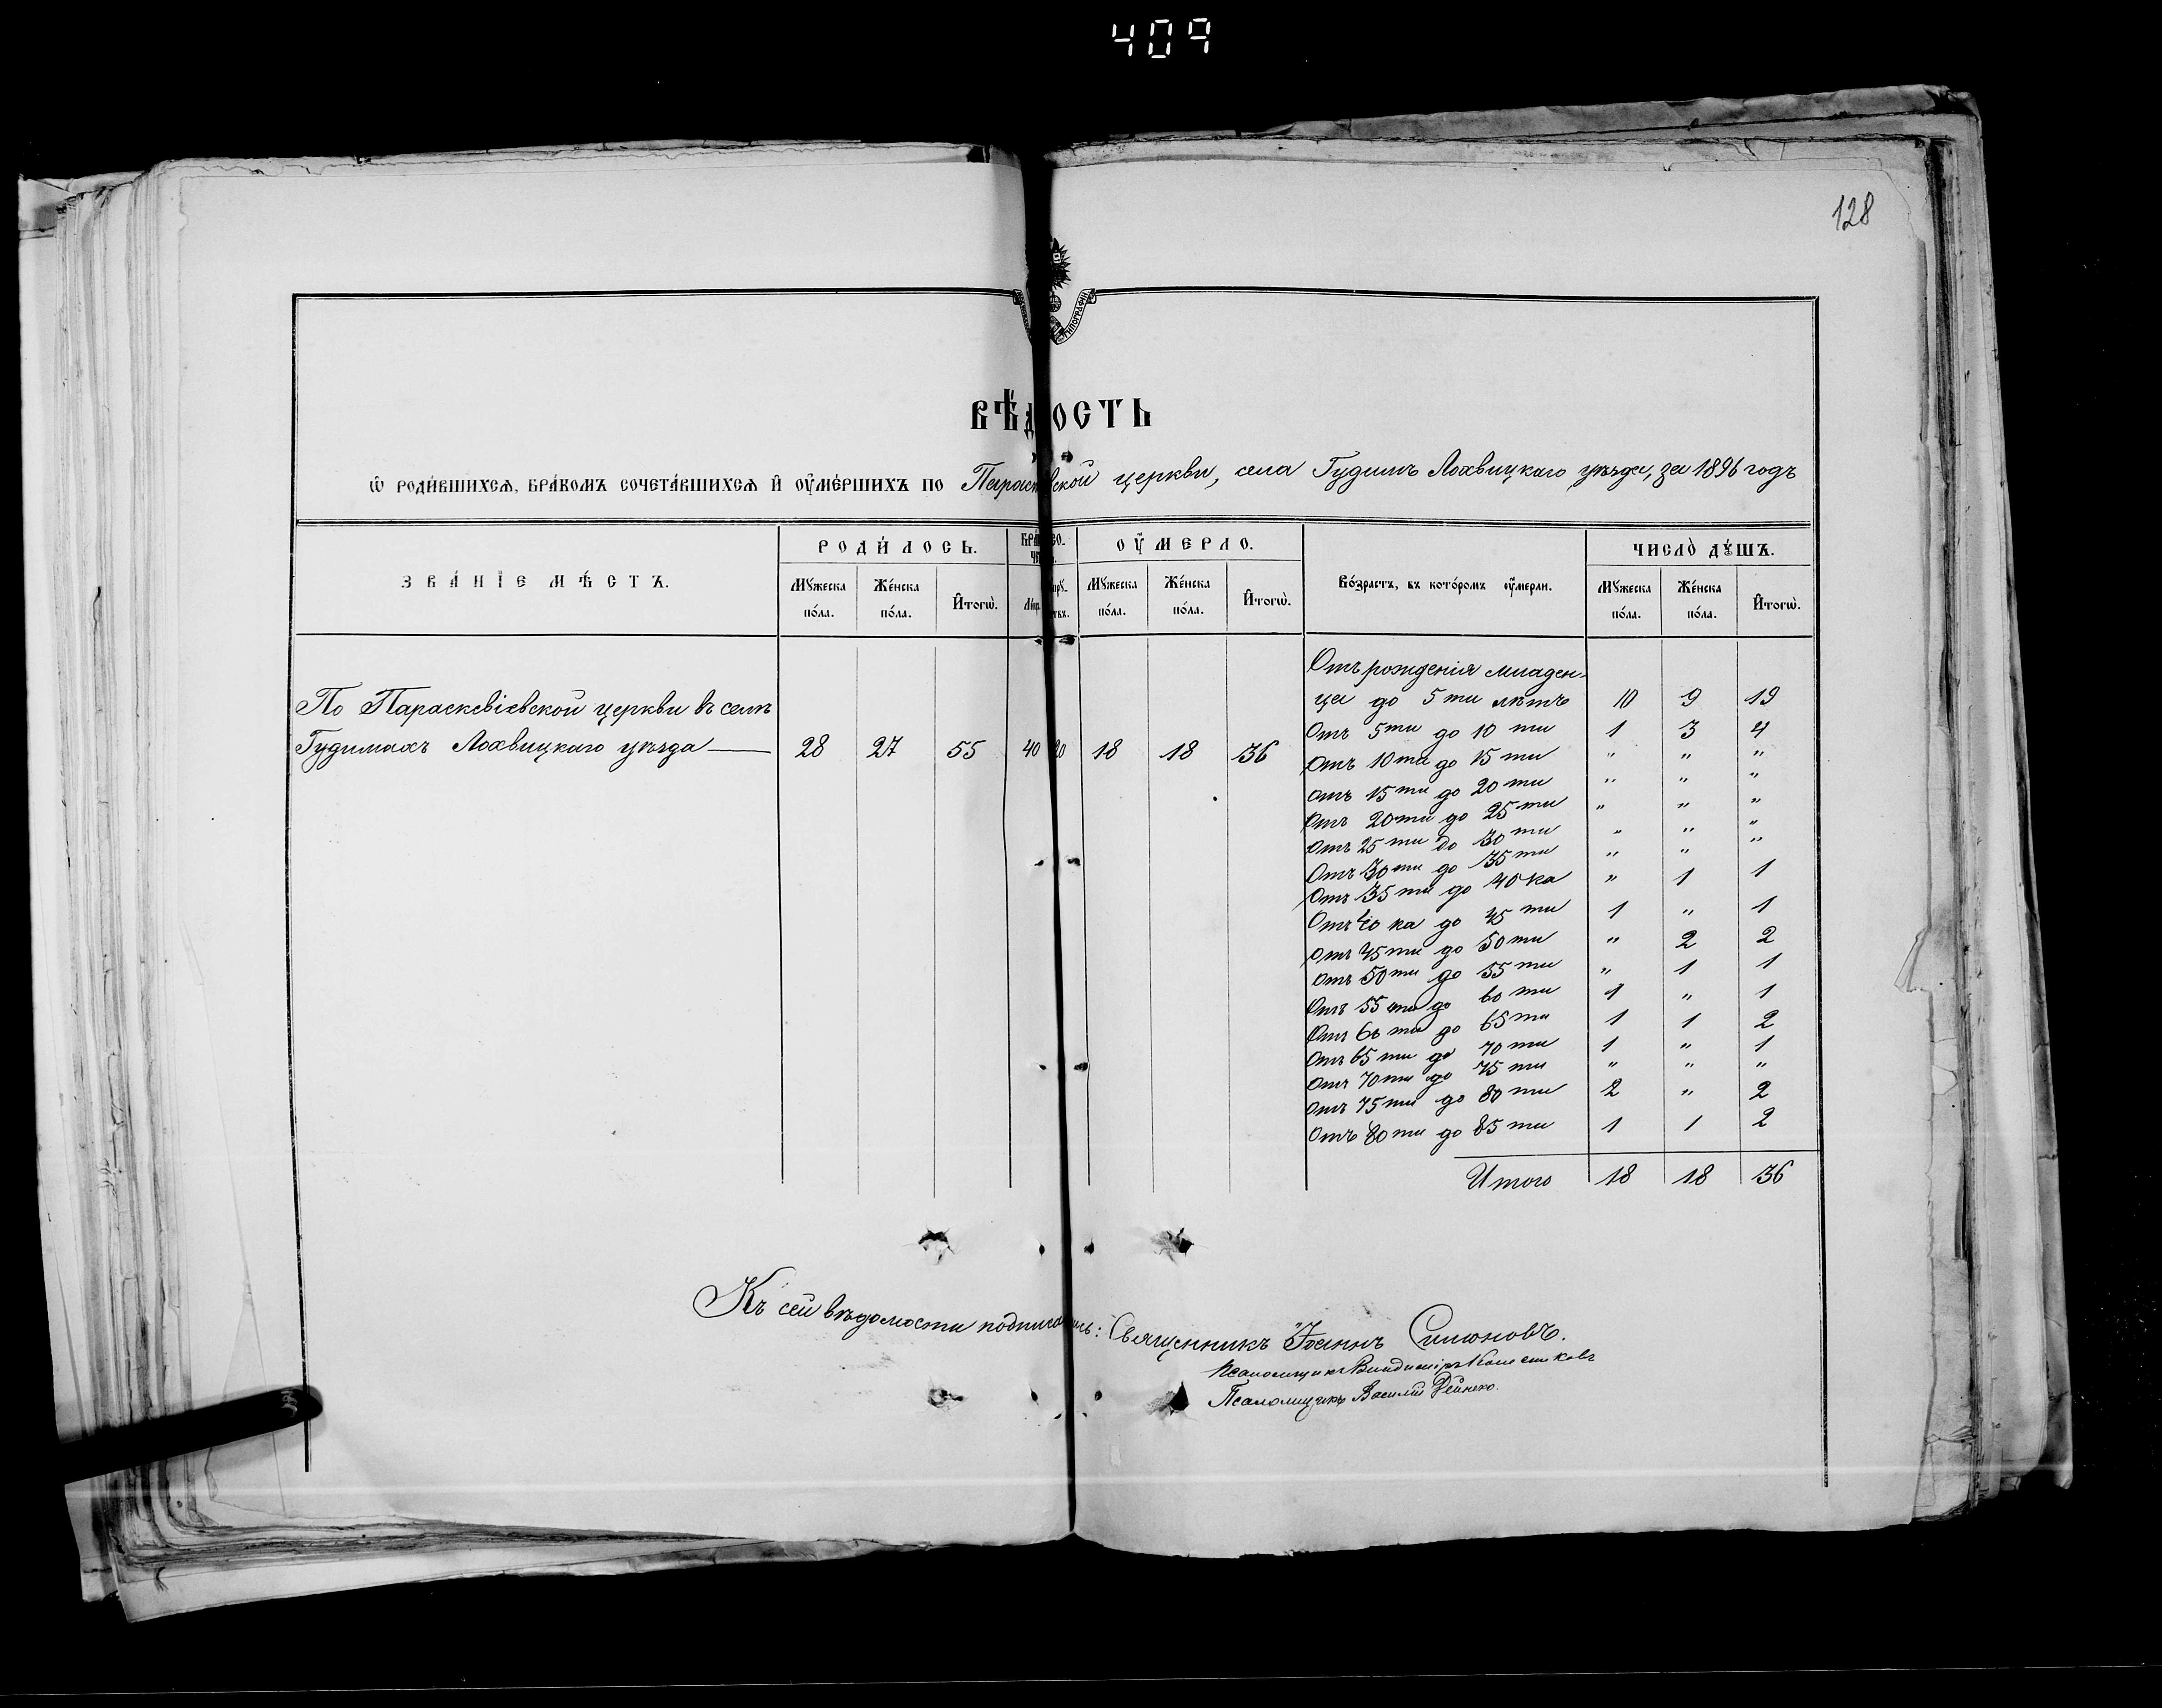 409
128
ВѢДОСТЬ
Ѡ РОДИ́ВШИХСѦ, БРА́КОМЪ СОЧЕТА́ВШИХСѦ И҆ ОУ҆МЕ́РШИХЪ ПО Параскевской церкви, села Гудимъ Лохвицкаго уѣзда, за 1896 годъ
ЗВА́НІЕ МѢ́СТЪ.
РОДИ́ЛОСЬ.
ОУ҆МЕРЛО.
Во́зрастъ, въ кото́ромъ оу҆мерли.
ЧИСЛО̀ ДꙊ́ШЪ.
Мꙋжеска по́ла.
Же́нска по́ла.
И҆тогѡ̀.
Мꙋжеска по́ла.
Же́нска по́ла.
И҆тогѡ̀.
Мꙋжеска по́ла.
Же́нска по́ла.
И҆тогѡ̀.
По Параскевіевской церкви въ селѣ
Гудимахъ Лохвицкаго уѣзда — 28 27 55 40 20 18 18 36
Отъ рожденія младен-
ца до 5ти лѣтъ 10 9 19
Отъ 5ти до 10 ти 1 3 4
Отъ 10ти до 15 ти " " "
Отъ 15ти до 20 ти " " "
Отъ 20ти до 25 ти " " "
Отъ 25ти до 30 ти " " "
Отъ 30ти до 35 ти " " "
Отъ 35ти до 40ка " 1 1
Отъ 40ка до 45 ти 1 " 1
Отъ 45ти до 50ти " 2 2
Отъ 50ти до 55 ти " 1 1
Отъ 55ти до 60 ти 1 " 1
Отъ 60ти до 65ти 1 1 2
Отъ 65ти до 70 ти 1 " 1
Отъ 70ти до 75 ти " " "
Отъ 75ти до 80 ти 2 " 2
Отъ 80ти до 85 ти 1 1 2
Итого 18 18 36
Къ сей вѣдомости подписались: Священникъ Іоаннъ Симоновъ.
Псаломщикъ Владиміръ
Псаломщикъ Василій Дейнеко.